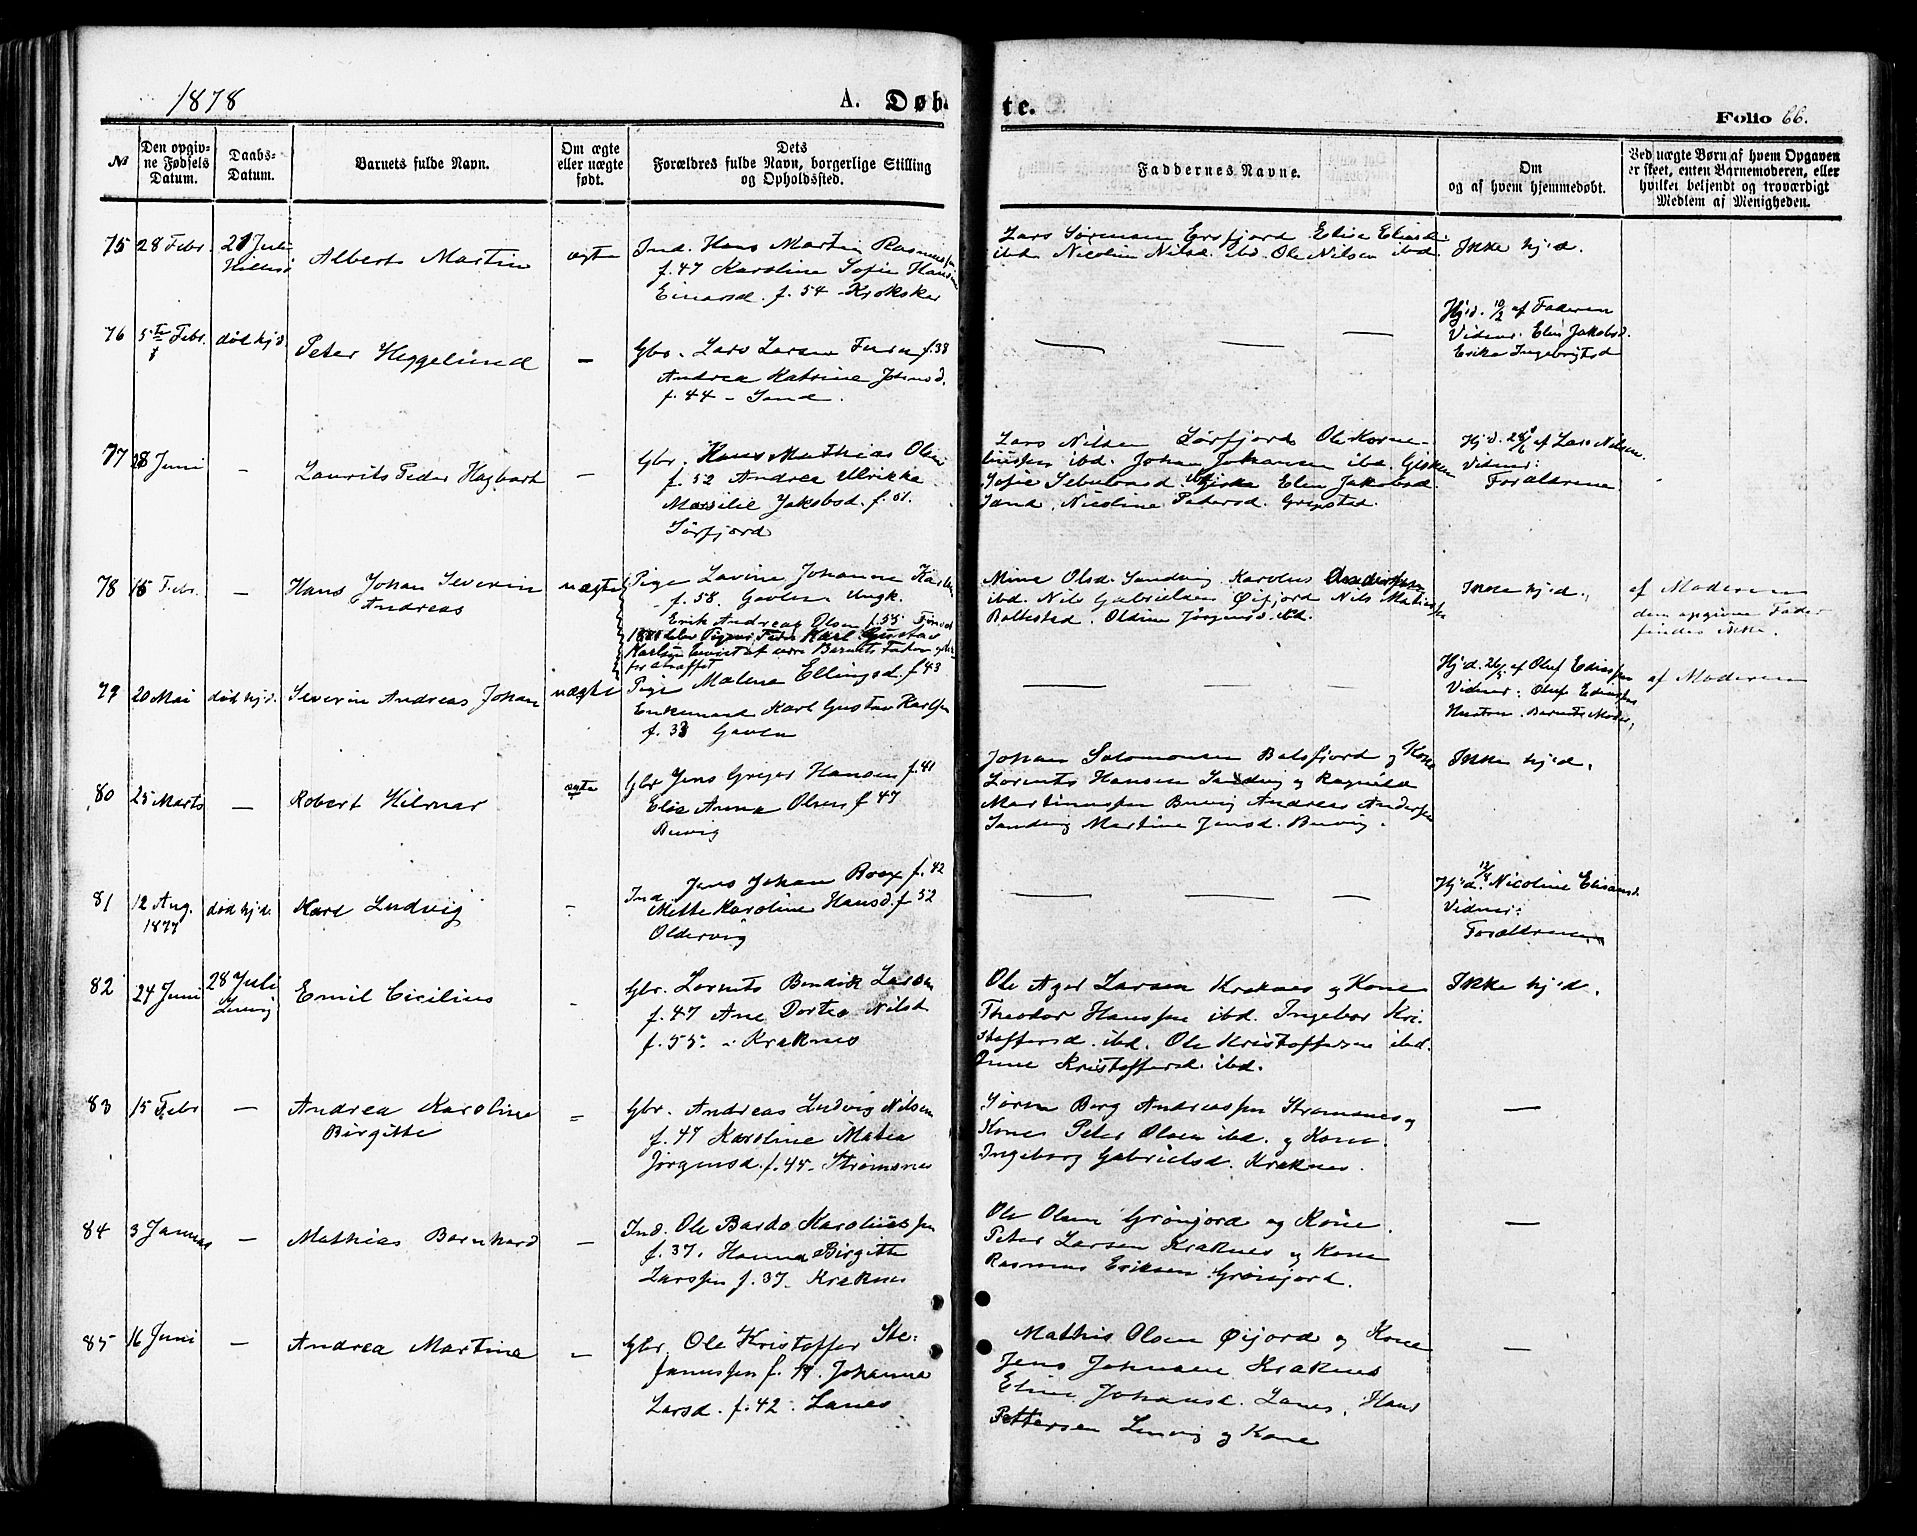 1878
A. Døb-
te.
Folio 66.
№
Den opgiv-
ne Fødsels
Datum.
Daabs-
Datum.
Barnets fulde Navn.
Om ægte
eller uægte
født.
Dets
Forældres fulde Navn, borgerlige Stilling
og Opholdssted.
Faddernes Navne.
Om
og af hvem hjemmedøbt.
Ved uægte Børn af hvem Opgaven
er skeet, enten Barnemoderen, eller
hvilket betjendt og troværdigt
Medlem af Menigheden.
75
28 Febr.
21 Juli
Hillesø
Albert Martin
ægte
Ind. Hans Martin Rasmussen
f. 47 Karoline Sofie Hansine
Einarsd. f. 54 - Krokskar
Lars Sørensen Ersfjord Elise Eliasd.
ibd. Nicoline Nilsd. ibd. Ole Nilsen ibd.
Ikke hj.d.
76
5te Febr.
død hj.d.
Peter Heggelund
—
Gbr. Lars Larsen Furu f. 38
Andrea Katrine Johnsd.
f. 44 - Sand.
— — —
Hj.d. 10/2 af Faderen
Vidner: Elen Jakobsd.
Erika Ingebrigtsd
77
28 Juni
—
Laurits Peder Hagbart
—
Gbr. Hans Mathias Olsen
f. 52 Andrea Ulrikke
Marselie Jakobsd. f. 51.
Sørfjord
Lars Nilsen Sørfjord Ole Korne-
liussen ibd. Johan Johansen ibd.
Sofie Sebulonsd. Elen Jakobsd.
Sand. Nicoline Pedersd. Grepstad.
Hj.d. 28/6 af Lars Nilsen.
Vidner:
Forældrene
78
15 Febr.
—
Hans Johan Severin
Andreas
uægte
Pige Lavina Johanna Karls
f. 58. Gavlen Ungk.
Erik Andreas Olsen f. 55
Pigens Fader Karl Gustav
Karlsen bevist at være Barnets Fader og
straffet
Mina Olsd. Sandvig Karolus Andersen
ibd. Nils Gabrielsen Øifjord Nils Mathisen
Baltestad. Oldine Jørgensd. ibd.
Ikke hj.d.
af Moderen
den opgivne Fader
findes ikke.
79
20 Mai
død hj.d.
Severin Andreas Johan
uægte
Pige Malena Ellingsd. f. 43
Enkemand Karl Gustav Karlsen
f. 33 Gavlen
— — —
Hj.d. 26/5 af Oluf Edissen
Vidner: Oluf Edissens
Hustru. Barnets Moder,
af Moderen
80
25 Marts
—
Robert Hilmar
ægte
Gbr Jens Greger Hansen f. 41
Elen Anna Olsen f 47
Buvig
Johan Salomonsen Balsfjord og Kone
Lorents Hansen Sandvig og Ragnild
Martinussen Buvig Andreas Andersen
Sandvig Martine Jensd. Buvig.
Ikke hj.d.
81
12 Aug.
1877
død hj.d.
Karl Ludvig
-
Ind. Jens Johan Boex f. 42
Mette Karoline Hansd. f 52
Oldervig
— — —
Hj.d. 12/8 Nicoline Eliasd.
Vidner:
Forældrene
82
24 Juni
28 Juli
Lenvig
Emil Cicilius
-
Gbr. Lorents Bendik Larsen
f. 47 Ane Dortea Nilsd
f. 55. - Kraknes
Ole Ager Larsen Kraknes og Kone
Theodor Hanssen ibd. Ingebor Kri-
stoffersd. ibd. Ole Kristoffersen ibd.
Anne Kristoffersd. ibd.
Ikke hj.d.
83
15 Febr
—
Andrea Karoline
Birgitte
-
Gbr. Andreas Ludvig Nilsen
f. 47 Karoline Matea
Jørgensd. f. 45. Strømsnes
Søren Berg Andreassen Strømsnes og
Kone Peter Olsen ibd. og Kone.
Ingeborg Gabrielsd. Kraknes.
—
84
3 Januar
—
Mathias Bernhard
—
Ind. Ole Bardo Karoliussen
f. 37. Hanna Birgitte
Larssen f. 37. Kraknes
Ole Olsen Grønjord og Kone.
Peter Larsen Kraknes og Kone
Rasmus Eriksen Grønjord.
—
85
16 Juni
—
Andrea Martina
-
Gbr. Ole Kristoffer Ste-
fanussen f. 44. Johanna
Larsd. f. 42. Lanes
Mathis Olsen Øijord og Kone
Jens Johnsen Kraknes
Eline Johansd. Lanes. Hans
Pettersen Lenvig og Kone
—